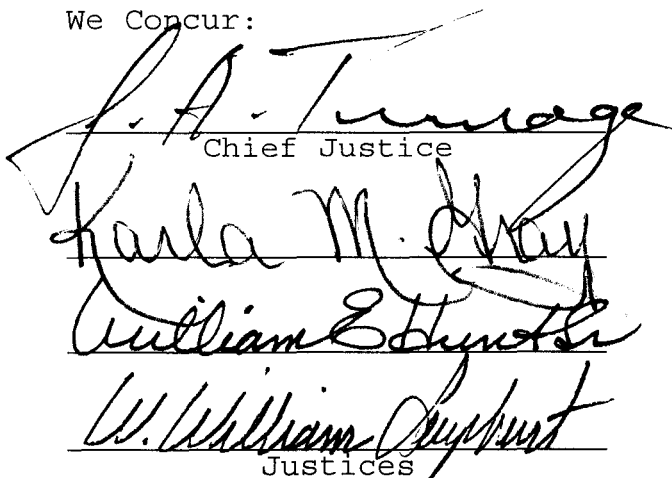 We Concur:
J. A. Turnage
Chief Justice
Karla M. Gray
William E Hunt Sr
W. William Leaphart
Justices